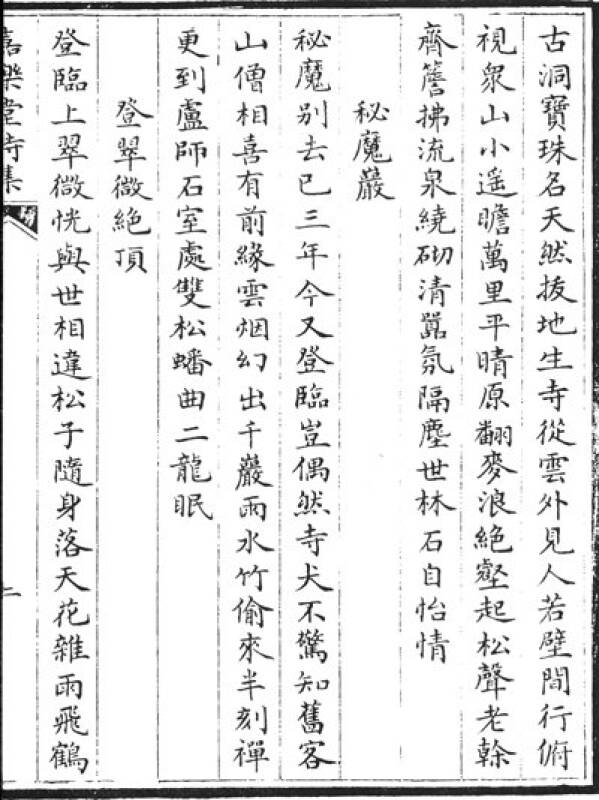 古洞寶珠名天然拔地生寺從雲外見人若壁間行俯
視衆山小遥瞻萬里平晴原翻麥浪絶壑起松聲老榦
齊簷拂流泉繞砌清囂氛隔塵世林石自怡情
秘魔巖
秘魔别去已三年今又登臨豈偶然寺犬不驚知舊客
山僧相喜有前緣雲烟幻出千巖雨水竹偷來半刻禪
更到盧師石室處雙松蟠曲二龍眠
登翠微絶頂
登臨上翠微恍與世相違松子隨身落天花雜雨飛鶴
嘉樂堂詩集
二